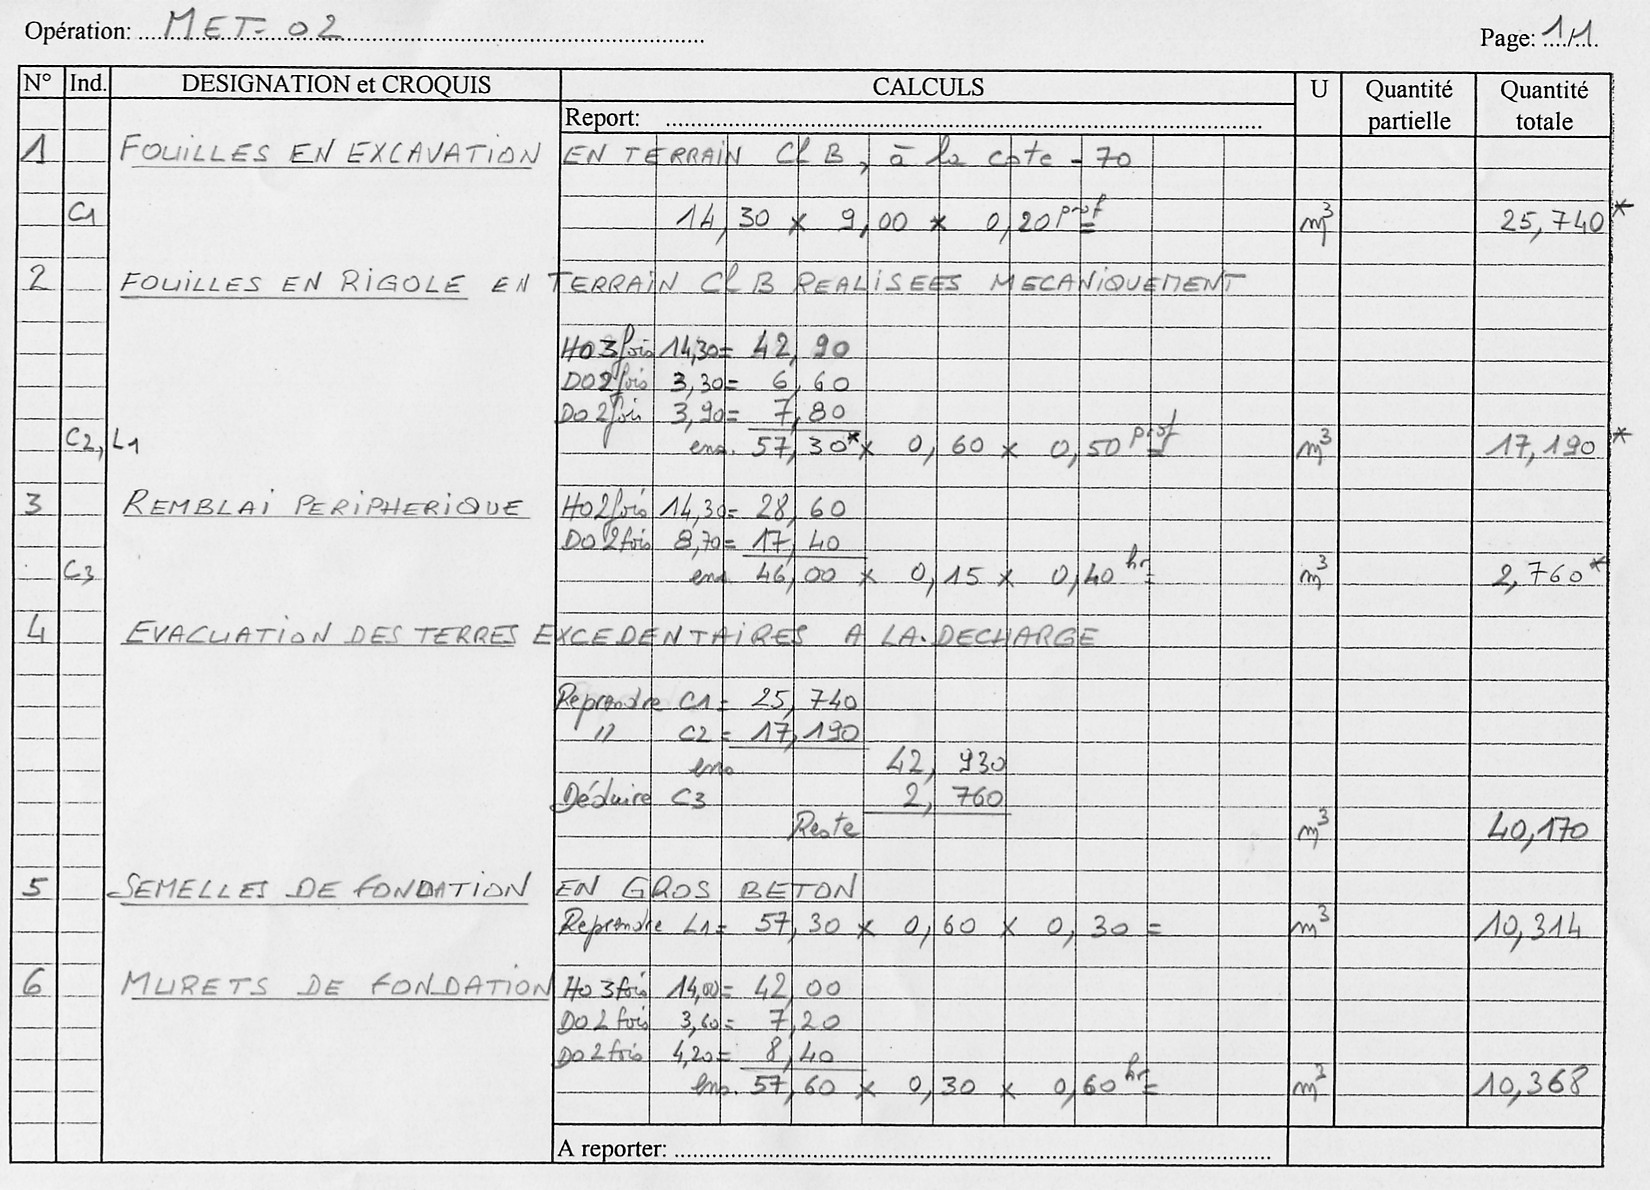 Opération: MET-02
Page: 1/1
N° Ind. DESIGNATION et CROQUIS CALCULS U Quantité partielle Quantité totale
Report:
1 FOUILLES EN EXCAVATION EN TERRAIN Cl B, à la cote - 70
C1 14,30 x 9,00 x 0,20 prof = m3 25,740*
2 FOUILLES EN RIGOLE EN TERRAIN Cl B REALISEES MECANIQUEMENT
Ho 3 fois 14,30= 42,90
Do 2 fois 3,30= 6,60
Do 2 fois 3,90= 7,80
C2, L1 ens. 57,30* x 0,60 x 0,50 prof = m3 17,190*
3 REMBLAI PERIPHERIQUE Ho 2 fois 14,30= 28,60
Do 2 fois 8,70= 17,40
C3 ens 46,00 x 0,15 x 0,40 hr = m3 2,760*
4 EVACUATION DES TERRES EXCEDENTAIRES A LA DECHARGE
Reprendre C1 = 25,740
" C2 = 17,190
ens 42,930
Déduire C3 2,760
Reste m3 40,170
5 SEMELLES DE FONDATION EN GROS BETON
Reprendre L1= 57,30 x 0,60 x 0,30 = m3 10,314
6 MURETS DE FONDATION Ho 3 fois 14,00= 42,00
Do 2 fois 3,60= 7,20
Do 2 fois 4,20= 8,40
ens. 57,60 x 0,30 x 0,60 hr = m3 10,368
A reporter: